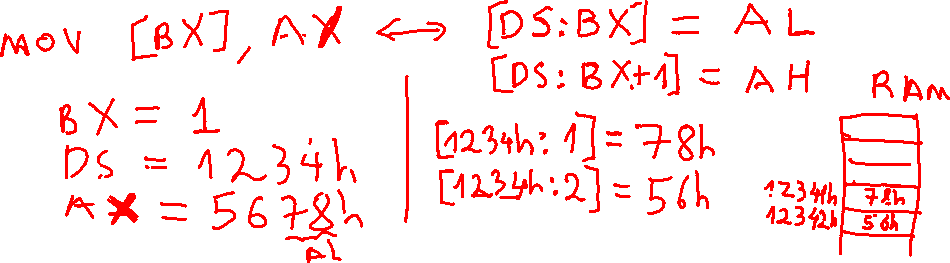 MOV [BX], AX ↔ [DS:BX] = AL
[DS:BX+1] = AH
BX = 1
DS = 1234h
AX = 5678h
AL
[1234h:1] = 78h
[1234h:2] = 56h
RAM
12341h 78h
12342h 56h